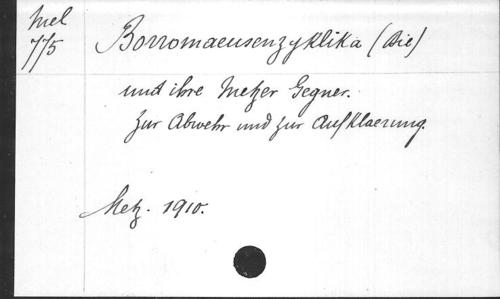 Mel
775
Borromaeusenzyklika (Die)
und ihre Metzer Gegner.
Zur Abwehr und zur Aufklaerung.
Metz. 1910.